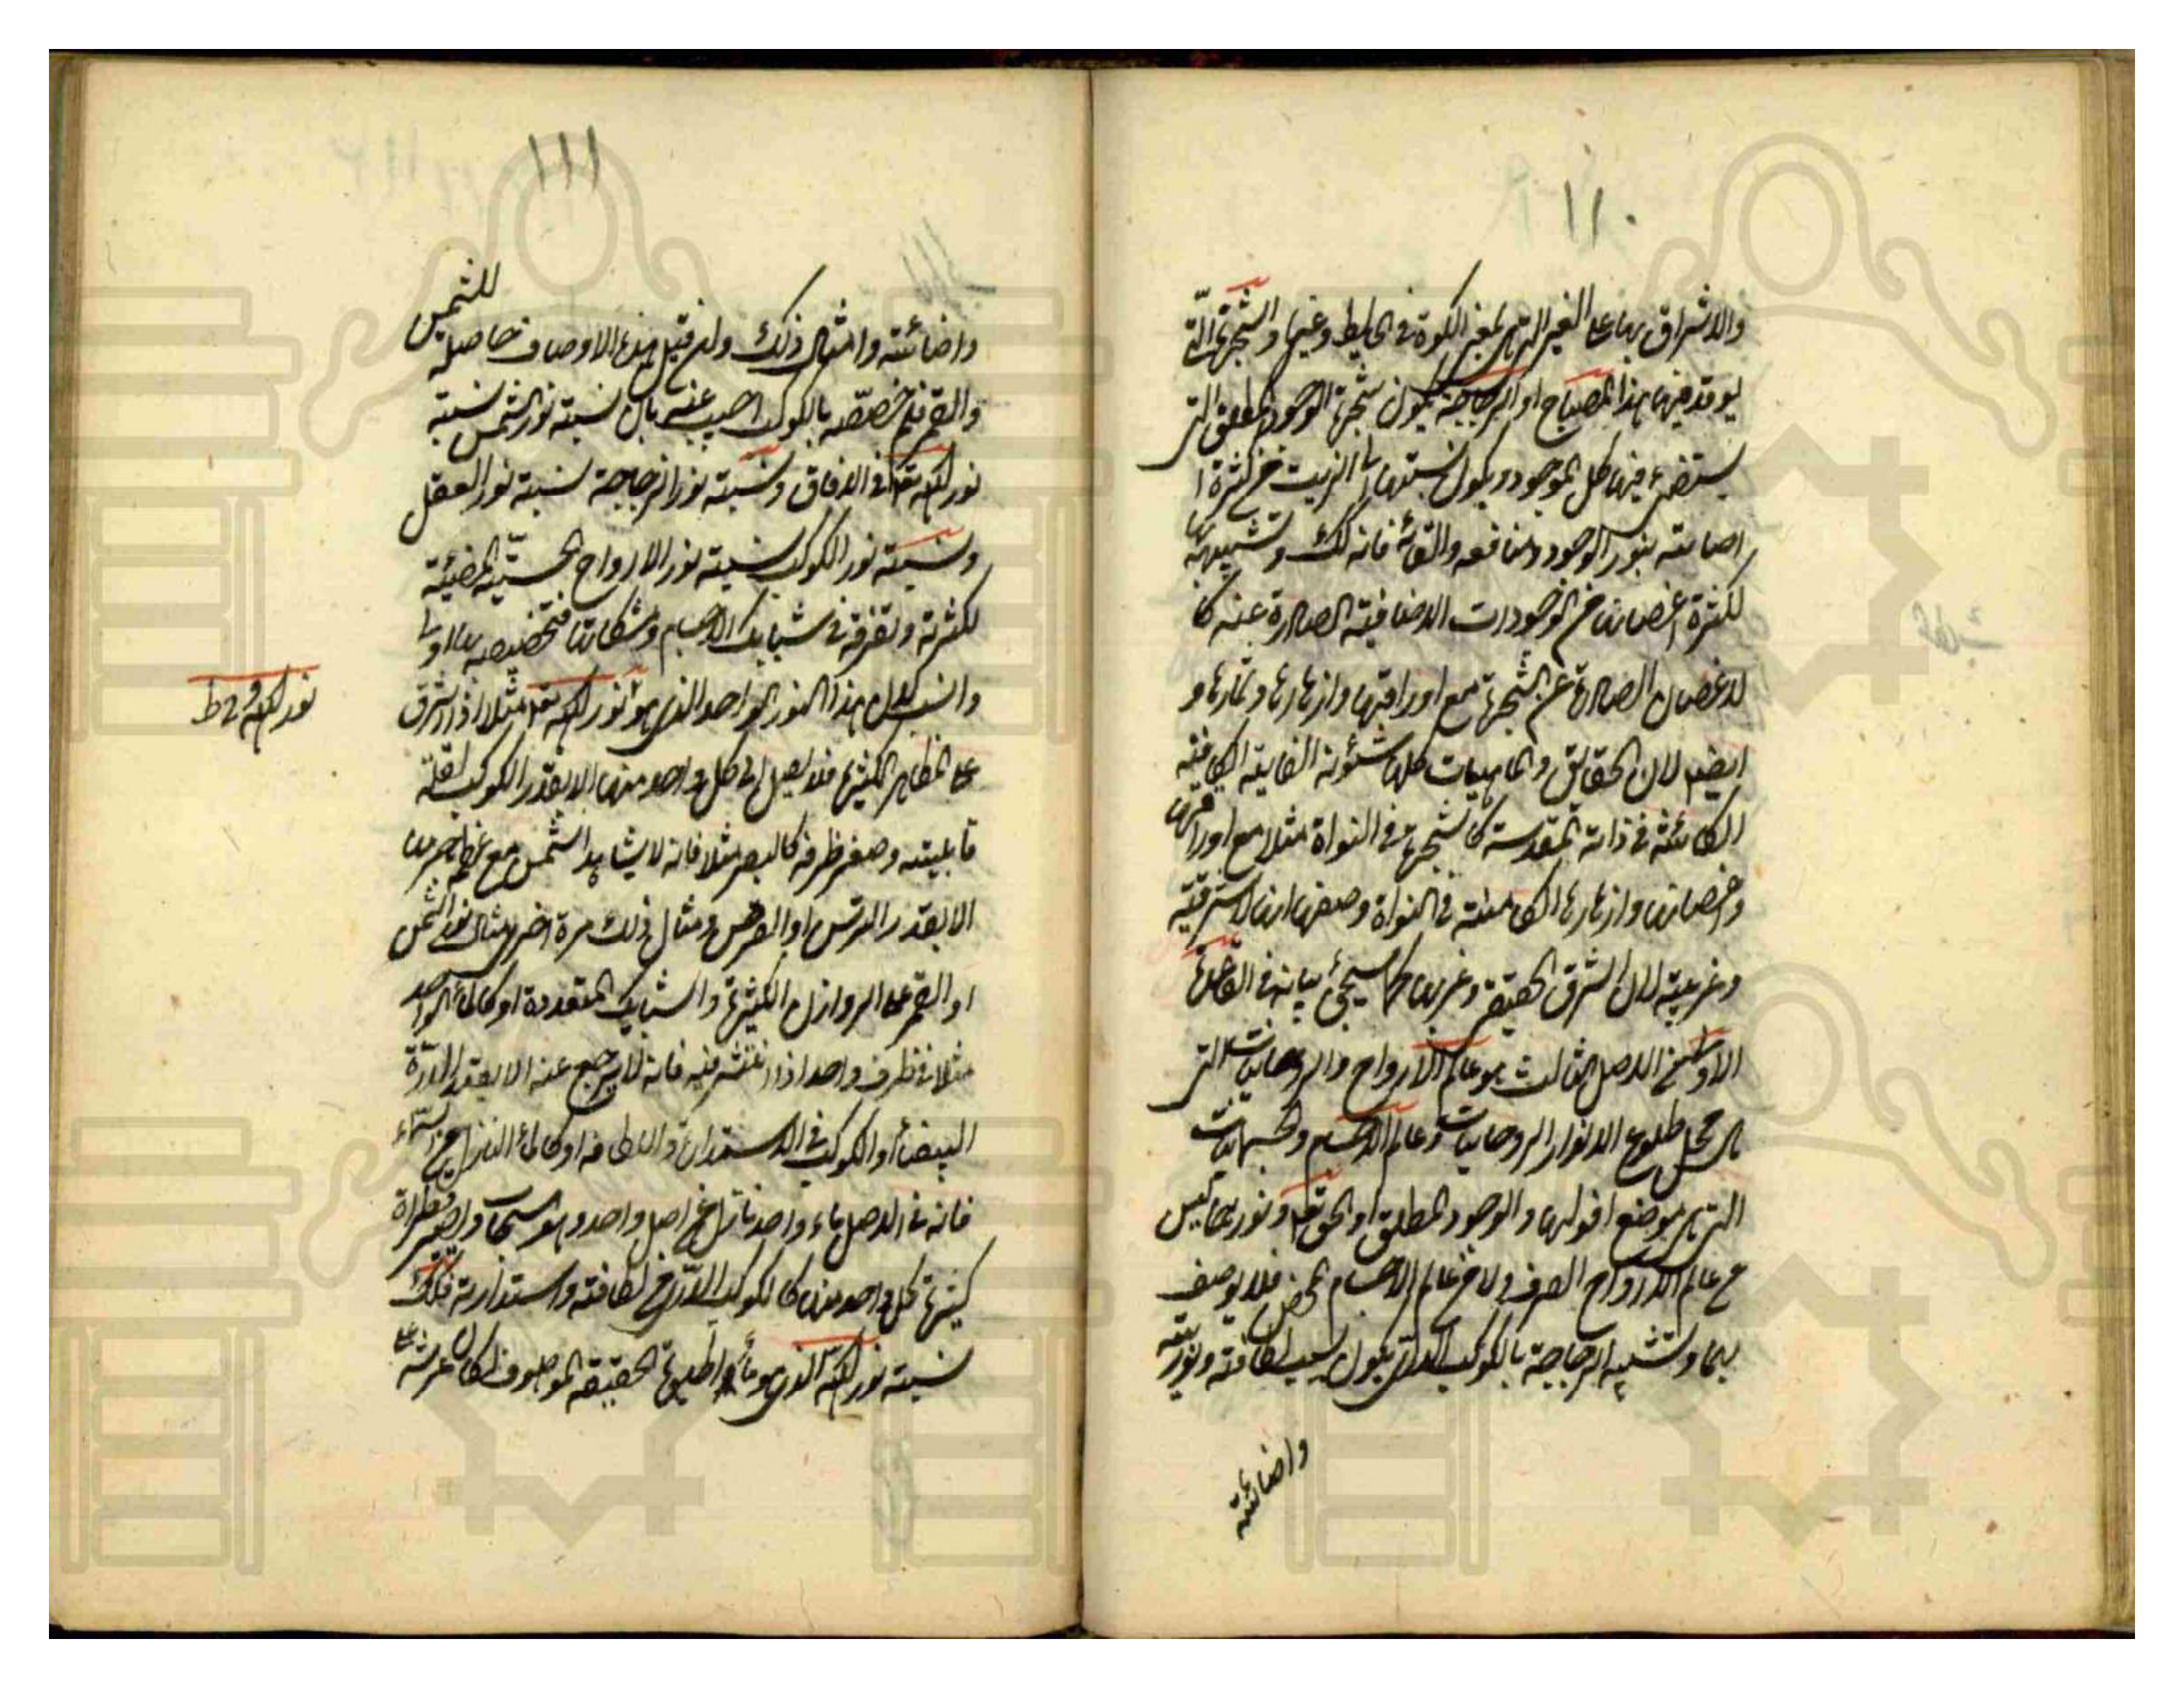 ١١٠
والاشراق بها على الغير التي بمعنى الكوة في الحايط وغيرها والشجرة التي
يوقد منها هذا المصباح او الزجاجة يكون شجرة الوجود المطلق التي
يستضيء منها كل الموجود ويكون نسبتها الى الزيت من كثرة
اضائته بنور الوجود ومنافعه والقائه فانه كذلك وتشبيهها
لكثرة اغصانها من الوجودات الاضافية الصادرة عنه كا
لاغصان الصادرة عن الشجرة مع اوراقها وازهارها وثمارها و
ايضا لان الحقايق والماهيات كلها شئونه الذاتية
الكامنة في ذاته المقدسة كالشجرة في النواة مثلا مع اوراقها
واغصانها وازهارها الكامنة في النواة وصفها انها لا شرقية
وغربية لان الشرق الحقيقي وغربها كما سيجيء بيانه في القاعدة
الاولى من الاصل الثالث هو عالم الارواح والروحانيات التي
هي محل طلوع الانوار الروحانيات وعالم الاجسام والجسمانيات
التي هي موضع افولها والوجود المطلق او الحق تعالى ونوره ليس
من عالم الارواح الصرف ولا من عالم الاجسام المحض فلا يوصف
بهما وتشبيه الزجاجة بالكوكب الدري يكون بسبب لطافته ونوريته
واضائته
١١١
واضائته وامثال ذلك وان قيل هذه الاوصاف حاصلة للشمس
والقمر فلم خصصه بالكوكب اجيب عنه بان نسبة نور الشمس نسبة
نور الله تعالى في الافاق ونسبة نور الزجاجة نسبة نور العقل
ونسبة نور الكوكب نسبة نور الارواح الحسية المضيئة
لكثرته وتفرقه في شبابيك الاجسام ومشكاتها فتخصيصه بها اولى
وانسب لان هذا النور الواحد الذي هو نور الله تعالى مثلا اذا اشرق
على المظاهر الكثيرة فلا يصل الى كل واحد منها الا بقدر الكوكب لقلة
قابليته وصغر ظرفه كالبصر مثلا فانه لا يشاهد الشمس مع عظم جرمها
الا بقدر الترس او القرص ومثال ذلك مرة اخرى مثال نور الشمس
او القمر على الروازن الكثيرة والشبابيك المتعددة او كالماء الواحد
مثلا في ظرف واحد اذا انتشر فيه فانه لا يرجع عنه الا بقدر الدرة
البيضاء او الكوكب في الاستدارة واللطافة او كالماء النازل من السماء
فانه في الاصل ماء واحد نازل من اصل واحد وهو السحاب ويصير قطراة
كثيرة كل واحد منها كالكوكب الدري في لطافته واستدارته فكذلك
نسبة نور الله الذي هو ماء الحقيقة الموصوف بكان عرشه على
نور الله في ظ